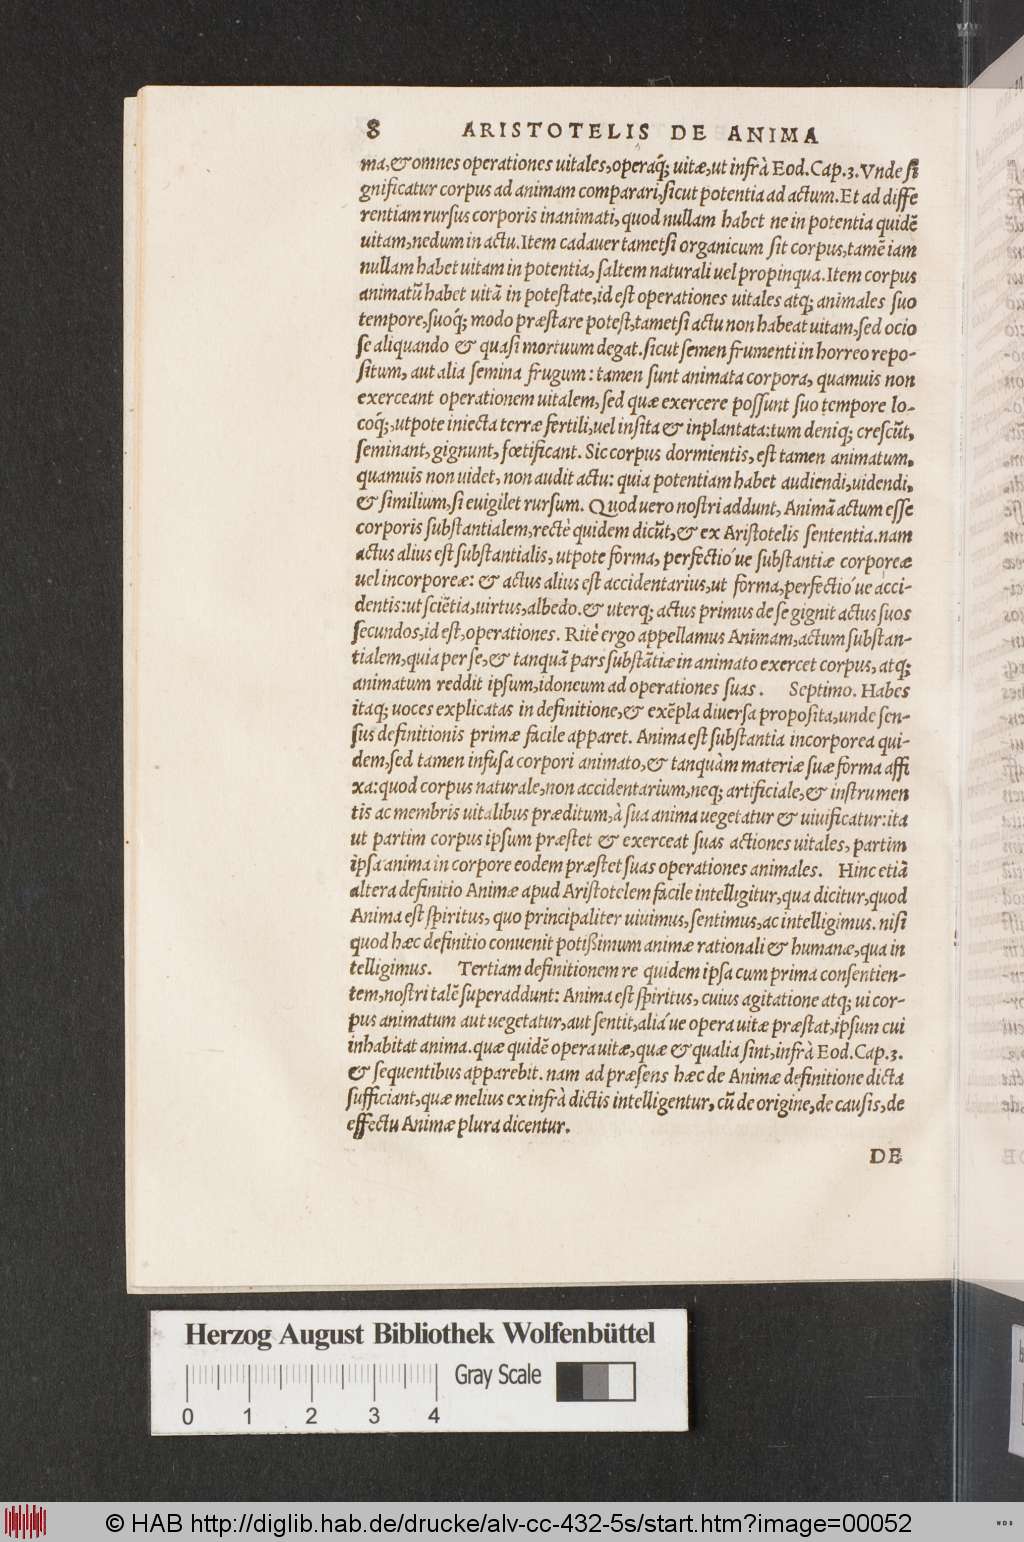 8 ARISTOTELIS DE ANIMA
ma, & omnes operationes uitales, operaq́; uitæ, ut infrà Eod. Cap. 3. Vnde si
gnificatur corpus ad animam comparari, sicut potentia ad actum. Et ad diffe
rentiam rursus corporis inanimati, quod nullam habet ne in potentia quidẽ
uitam, nedum in actu. Item cadauer tametsi organicum sit corpus, tamẽ iam
nullam habet uitam in potentia, saltem naturali uel propinqua. Item corpus
animatũ habet uitã in potestate, id est operationes uitales atq; animales suo
tempore, suoq́; modo præstare potest, tametsi actu non habeat uitam, sed ocio
se aliquando & quasi mortuum degat. sicut semen frumenti in horreo repo-
situm, aut alia semina frugum: tamen sunt animata corpora, quamuis non
exerceant operationem uitalem, sed quæ exercere possunt suo tempore lo-
coq́;, utpote iniecta terræ fertili, uel insita & inplantata: tum deniq; crescũt,
seminant, gignunt, fœtificant. Sic corpus dormientis, est tamen animatum,
quamuis non uidet, non audit actu: quia potentiam habet audiendi, uidendi,
& similium, si euigilet rursum. Quod uero nostri addunt, Animã actum esse
corporis substantialem, rectè quidem dicũt, & ex Aristotelis sententia. nam
actus alius est substantialis, utpote forma, perfectió ue substantiæ corporeæ
uel incorporeæ: & actus alius est accidentarius, ut forma, perfectió ue acci-
dentis: ut sciẽtia, uirtus, albedo. & uterq; actus primus de se gignit actus suos
secundos, id est, operationes. Ritè ergo appellamus Animam, actum substan-
tialem, quia per se, & tanquã pars substãtiæ in animato exercet corpus, atq;
animatum reddit ipsum, idoneum ad operationes suas. Septimo. Habes
itaq; uoces explicatas in definitione, & exẽpla diuersa proposita, unde sen-
sus definitionis primæ facile apparet. Anima est substantia incorporea qui-
dem, sed tamen infusa corpori animato, & tanquàm materiæ suæ forma affi
xa: quod corpus naturale, non accidentarium, neq; artificiale, & instrumen
tis ac membris uitalibus præditum, à sua anima uegetatur & uiuificatur: ita
ut partim corpus ipsum præstet & exerceat suas actiones uitales, partim
ipsa anima in corpore eodem præstet suas operationes animales. Hinc etiã
altera definitio Animæ apud Aristotelem facile intelligitur, qua dicitur, quod
Anima est spiritus, quo principaliter uiuimus, sentimus, ac intelligimus. nisi
quod hæc definitio conuenit potißimum animæ rationali & humanæ, qua in
telligimus. Tertiam definitionem re quidem ipsa cum prima consentien-
tem, nostri talẽ superaddunt: Anima est spiritus, cuius agitatione atq; ui cor-
pus animatum aut uegetatur, aut sentit, aliá ue opera uitæ præstat, ipsum cui
inhabitat anima. quæ quidẽ opera uitæ, quæ & qualia sint, infrà Eod. Cap. 3.
& sequentibus apparebit. nam ad præsens hæc de Animæ definitione dicta
sufficiant, quæ melius ex infrà dictis intelligentur, cũ de origine, de causis, de
effectu Animæ plura dicentur.
DE
Herzog August Bibliothek Wolfenbüttel
Gray Scale
0 1 2 3 4
© HAB http://diglib.hab.de/drucke/alv-cc-432-5s/start.htm?image=00052